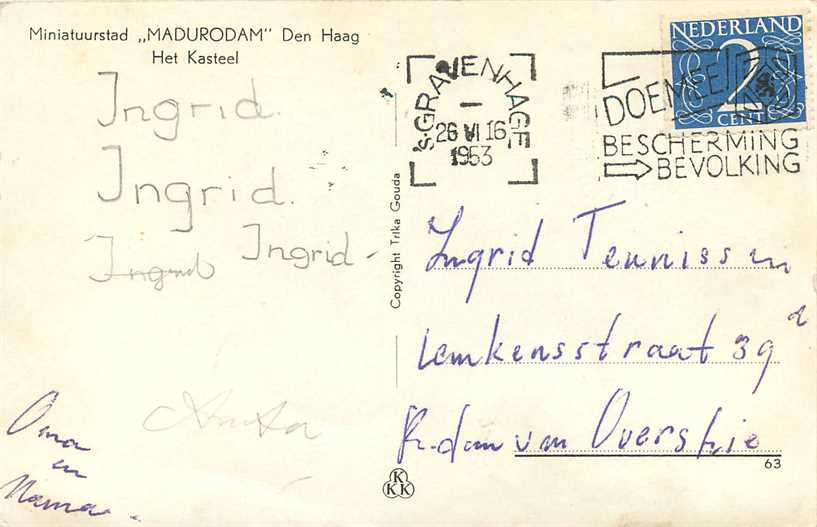 Miniatuurstad „MADURODAM" Den Haag
Het Kasteel
Ingrid.
Ingrid.
Ingrid Ingrid-
Oma
en
Mama.
Copyright Trika Gouda
's-GRAVENHAGE
26 VI 16
1953
NEDERLAND
2
CENT
DOE MEE
BESCHERMING
BEVOLKING
Ingrid Teunissen
Lemkensstraat 39 a
R.dam van Overschie
63
K
K K